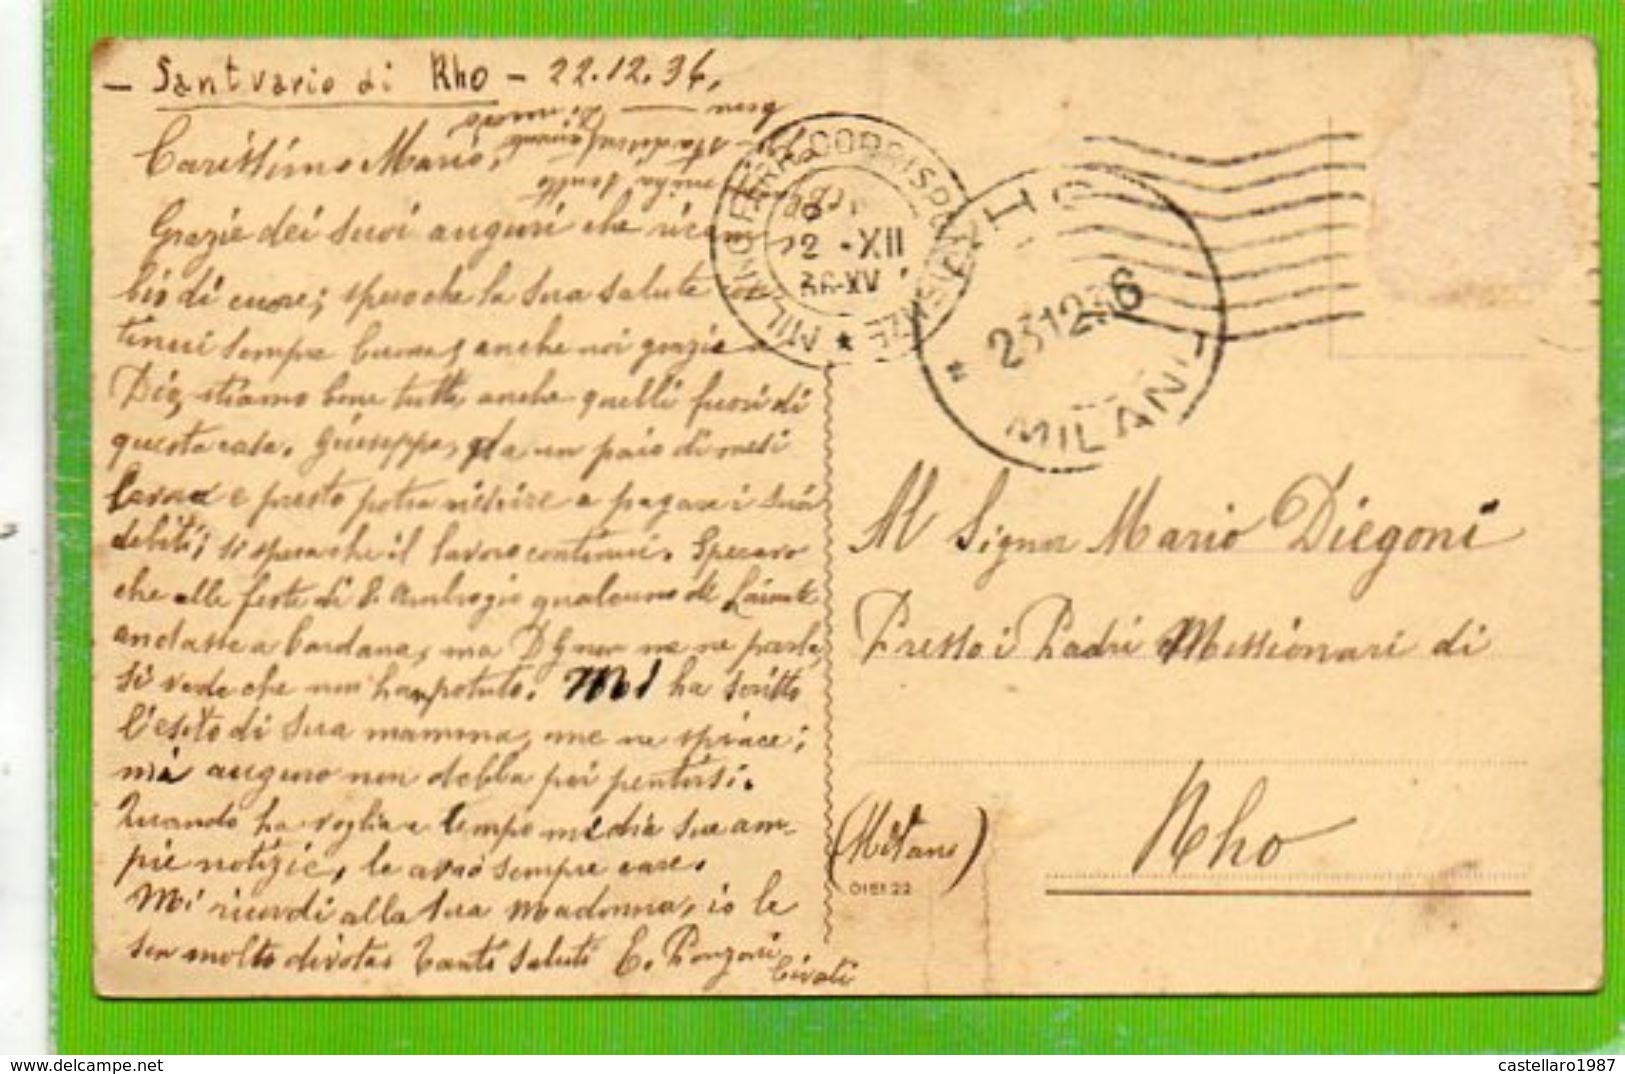 - Santuario di Rho - 22.12.36,
Carissimo Mario,
Grazie dei suoi auguri che ricam
bio di cuore; spero che la sua salute con
tinui sempre buona, anche noi grazie a
Dio, stiamo bene tutti, anche quelli fuori di
questa casa. Giuseppe, da un paio di mesi
lavora e presto potrà riuscire a pagare i suoi
debiti; si spera che il lavoro continui. Speravo
che alle feste di S. Ambrogio qualcuno di
andasse a Bardana, ma non me ne parla,
si vede che non han potuto. Mi ha scritto
l'esito di sua mamma, me ne spiace;
mi auguro non debba poi pentirsi.
Quando ha voglia e tempo mi dia sue am-
pie notizie, le avrò sempre care.
Mi ricordi alla sua Madonna, io le
son molto divota. Tanti saluti E. Ponzoni
Civati
MILANO FERR. CORRISPONDENZE
22 -XII
36-XV
MILANO
23 12 36
Al Signor Mario Diegoni
Presso i Padri Missionari di
Rho
(Milano)
018122
castellaro1987